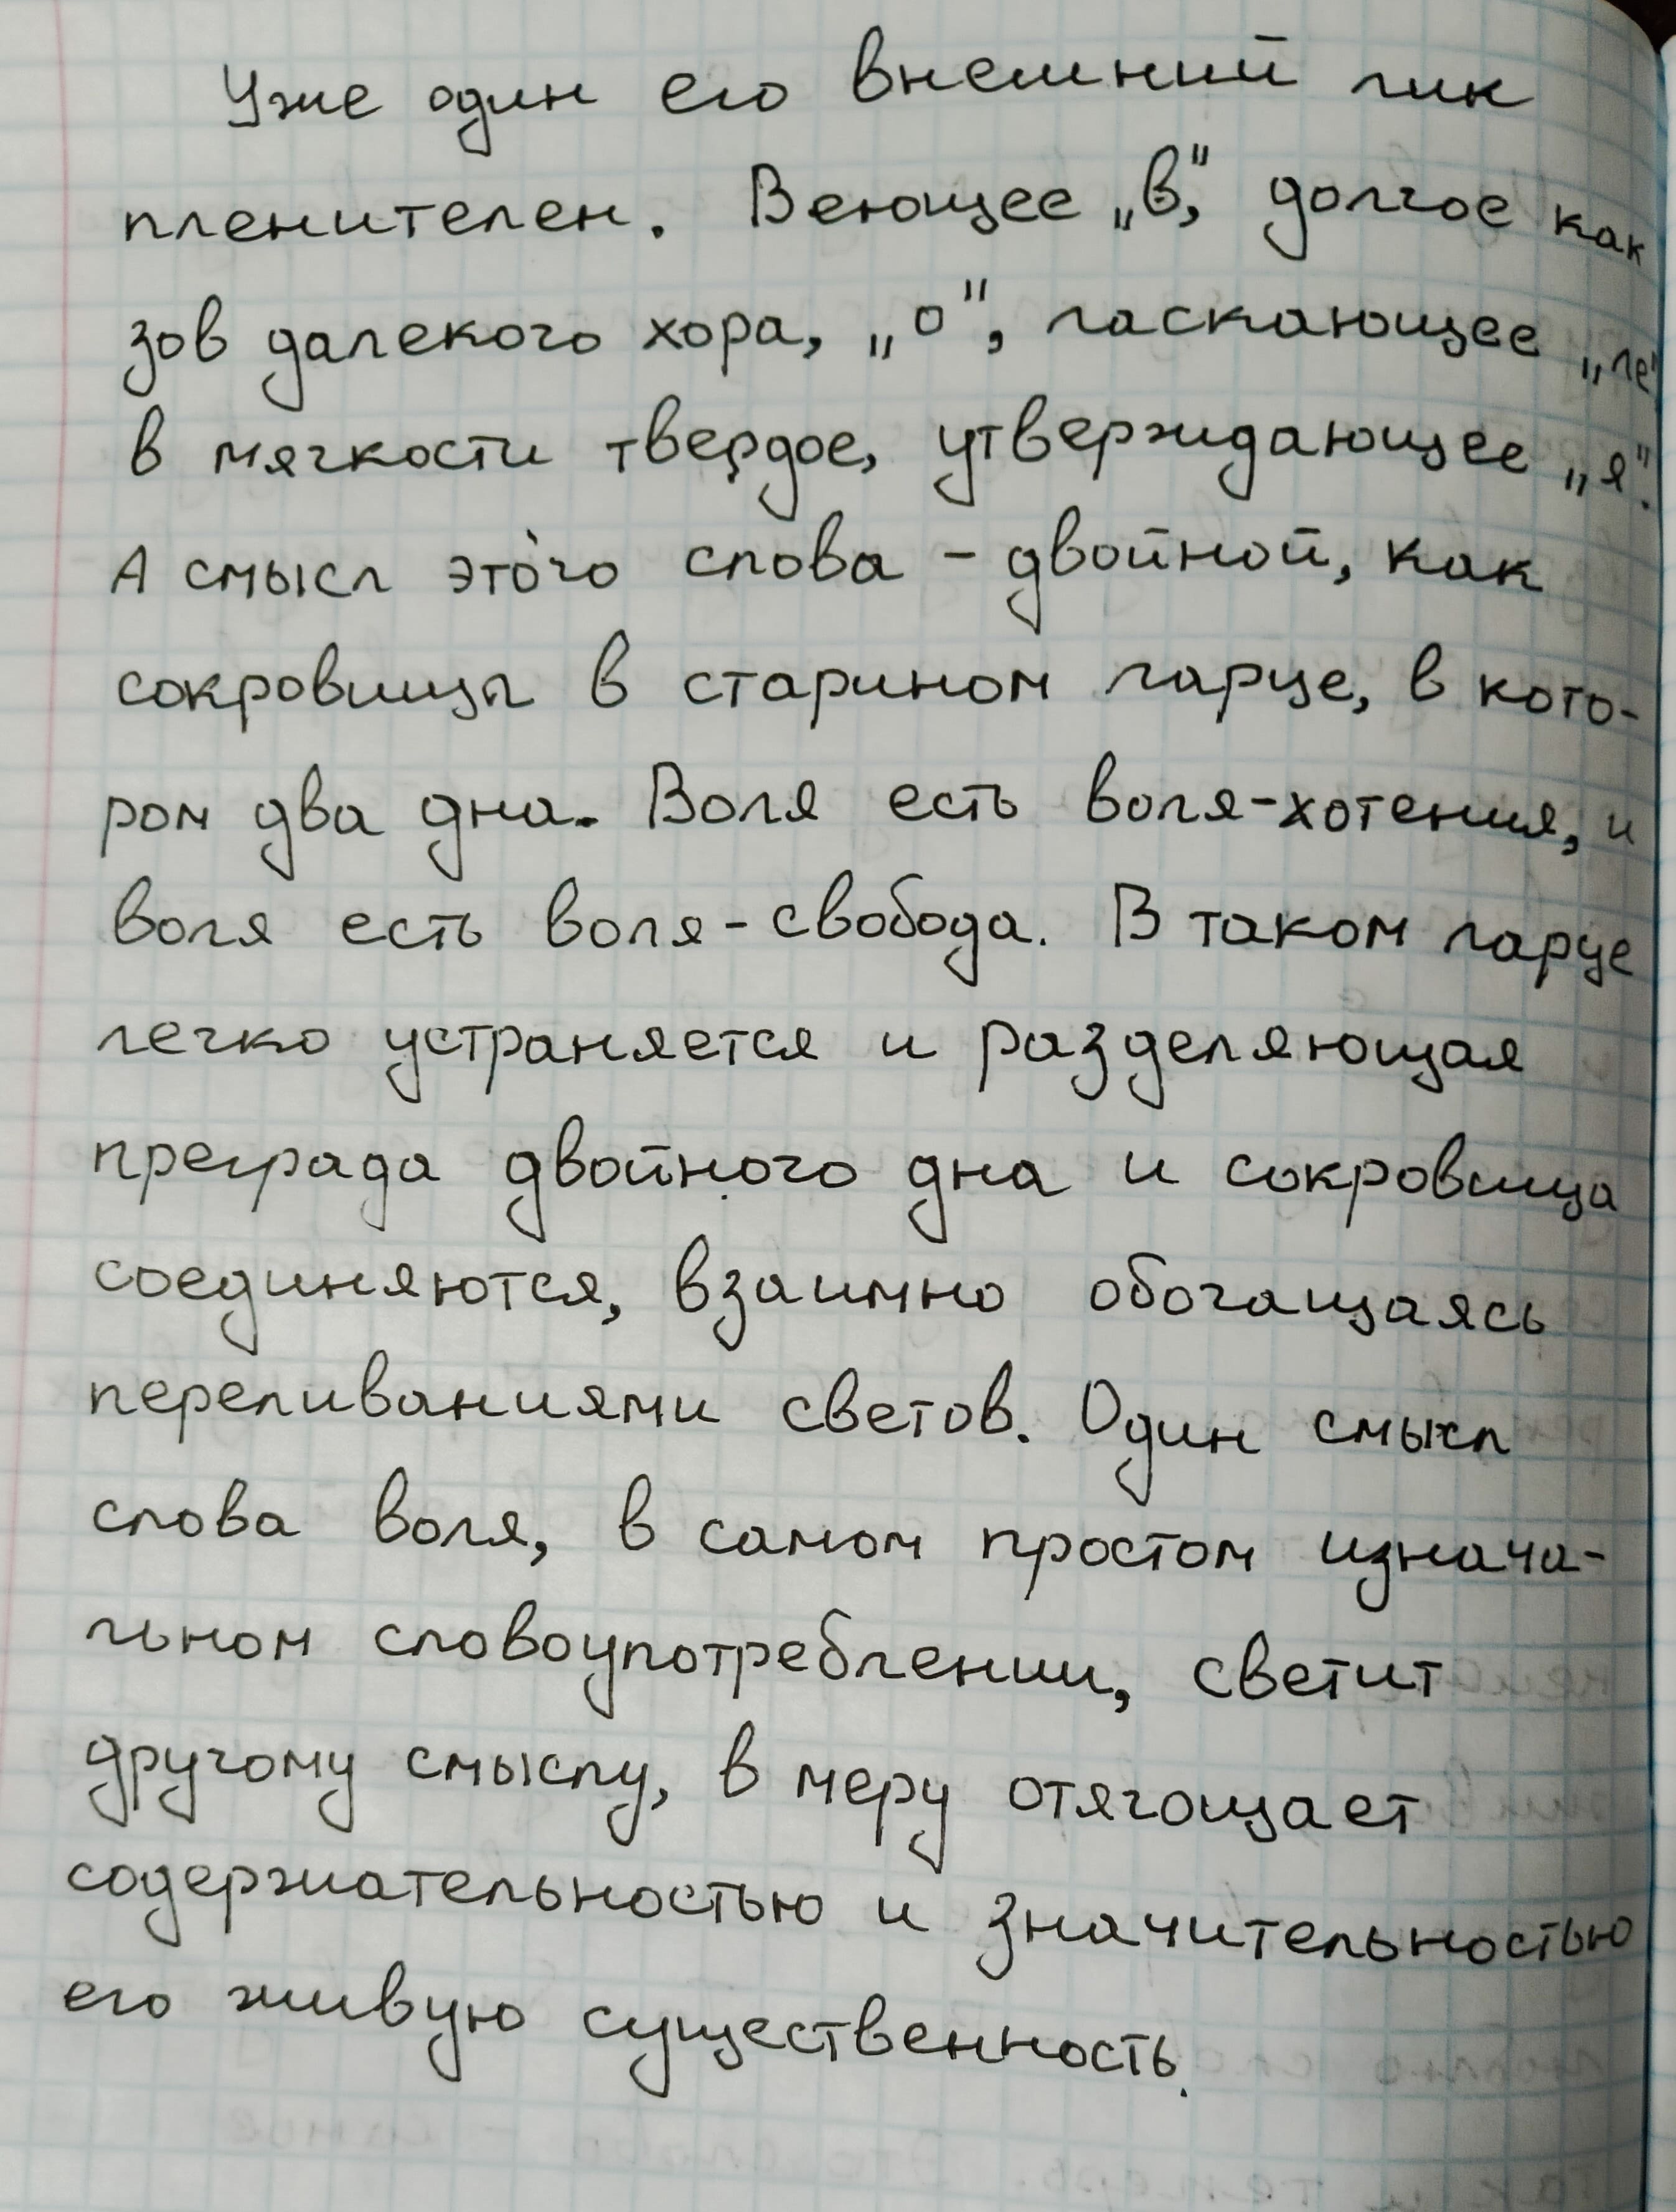 Уже один его внешний лик
пленителен. Веющее „в“, долгое как
зов далекого хора, „о“, ласкающее „ле“
в мягкости твердое, утверждающее „я“.
А смысл этого слова – двойной, как
сокровищы в старином ларце, в кото-
ром два дна. Воля есть воля-хотения, и
воля есть воля-свобода. В таком ларце
легко устраняется и разделяющая
преграда двойного дна и сокровища
соединяются, взаимно обогащаясь
переливаниями светов. Один смысл
слова воля, в самом простом изнача-
льном словоупотреблении, светит
другому смыслу, в меру отягощает
содержательностью и значительностью
его живую существенность.